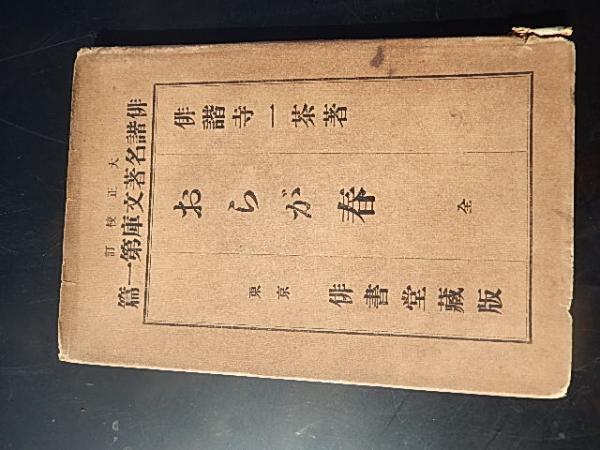 大正校訂
俳諧名著文庫第一篇
俳諧寺一茶著
おらが春 全
東京 俳書堂藏版